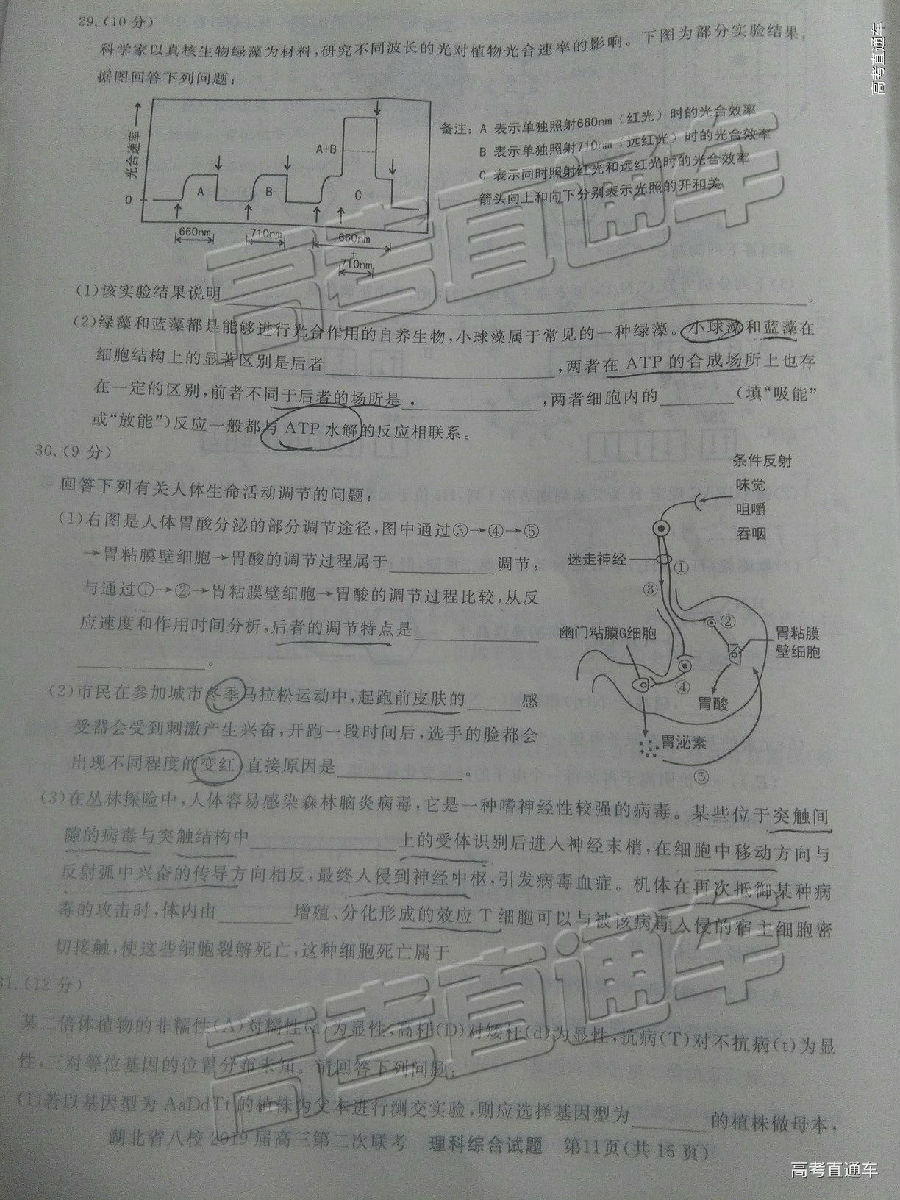 29.(10分)
科学家以真核生物绿藻为材料,研究不同波长的光对植物光合速率的影响。下图为部分实验结果,
据图回答下列问题:
光合速率
0
A
B
A+B
C
660nm
710nm
660nm
+
710nm
备注: A 表示单独照射660nm(红光)时的光合效率
B 表示单独照射710nm(远红光)时的光合效率
C 表示同时照射红光和远红光时的光合效率
箭头向上和向下分别表示光照的开和关
(1)该实验结果说明
(2)绿藻和蓝藻都是能够进行光合作用的自养生物,小球藻属于常见的一种绿藻。小球藻和蓝藻在
细胞结构上的显著区别是后者,两者在 ATP 的合成场所上也存
在一定的区别,前者不同于后者的场所是,两者细胞内的(填“吸能”
或“放能”)反应一般都与 ATP 水解的反应相联系。
30.(9分)
回答下列有关人体生命活动调节的问题:
(1)右图是人体胃酸分泌的部分调节途径,图中通过③→④→⑤
→胃粘膜壁细胞→胃酸的调节过程属于调节;
与通过①→②→胃粘膜壁细胞→胃酸的调节过程比较,从反
应速度和作用时间分析,后者的调节特点是
。
条件反射
味觉
咀嚼
吞咽
迷走神经
①
③
②
幽门粘膜G细胞
胃粘膜
壁细胞
④
胃酸
胃泌素
⑤
(2)市民在参加城市冬季马拉松运动中,起跑前皮肤的感
受器会受到刺激产生兴奋,开跑一段时间后,选手的脸都会
出现不同程度的变红,直接原因是。
(3)在丛林探险中,人体容易感染森林脑炎病毒,它是一种嗜神经性较强的病毒。某些位于突触间
隙的病毒与突触结构中上的受体识别后进入神经末梢,在细胞中移动方向与
反射弧中兴奋的传导方向相反,最终入侵到神经中枢,引发病毒血症。机体在再次抵御某种病
毒的攻击时,体内由增殖、分化形成的效应 T 细胞可以与被该病毒入侵的宿主细胞密
切接触,使这些细胞裂解死亡,这种细胞死亡属于
31.(12分)
某二倍体植物的非糯性(A)对糯性(a)为显性,高秆(D)对矮秆(d)为显性,抗病(T)对不抗病(t)为显
性,三对等位基因的位置分布未知。请回答下列问题:
(1)若以基因型为 AaDdTt 的植株为父本进行测交实验,则应选择基因型为的植株做母本,
湖北省八校2019届高三第二次联考 理科综合试题 第11页(共16页)
高考直通车
高考直通车
高考直通车
高考直通车